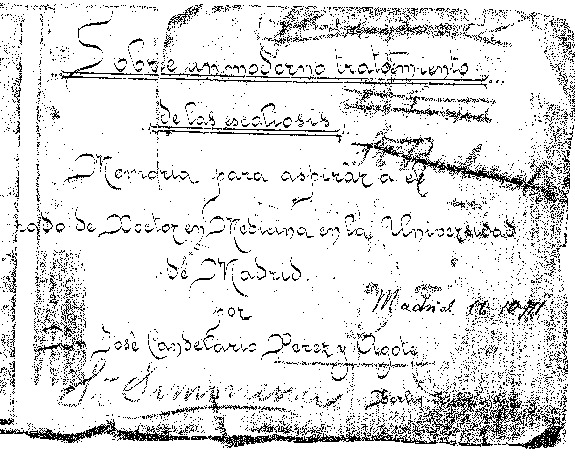 Sobre un moderno tratamiento
de las escoliosis
Memoria para aspirar a el
grado de Doctor en Medicina en la Universidad
de Madrid
por
José Candelario Perez y Agote
Madrid